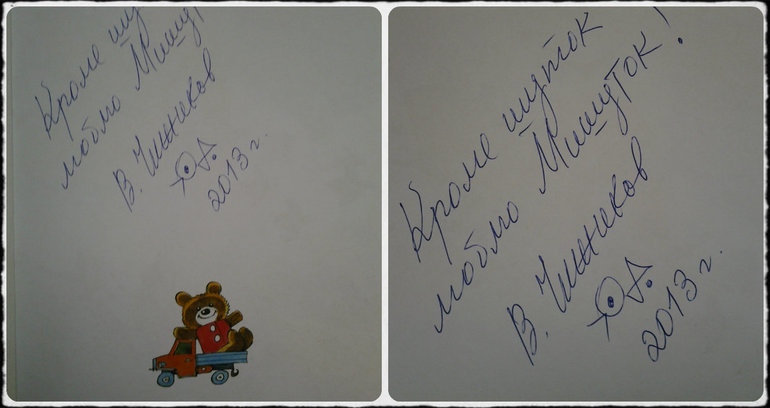 Кроме шу
люблю Мишут
В. Чижиков
2013 г.
Кроме шуток
люблю Мишуток!
В. Чижиков
2013 г.